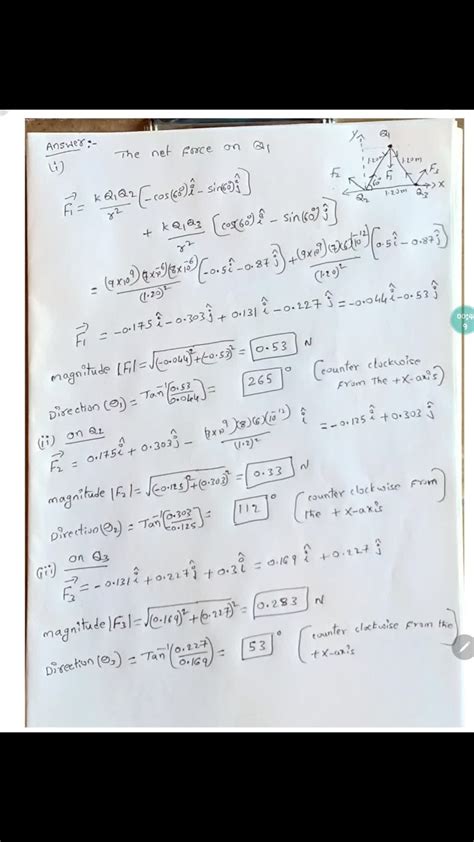 Answer:-
(i) The net force on Q1
F⃗1 = kQ1Q2/r² [-cos(60°)î - sin(60)ĵ]
+ kQ1Q3/r² [cos(60°)î - sin(60°)ĵ]
= (9×10⁹)(7×10⁻⁶)(8×10⁻⁶)/(1.20)² [-0.5î - 0.87ĵ] + (9×10⁹)(7)(6)(10⁻¹²)/(1.20)² [0.5î - 0.87ĵ]
F⃗1 = -0.175î - 0.303ĵ + 0.131î - 0.227ĵ = -0.044î - 0.53ĵ
magnitude |F1| = √(-0.044)² + (-0.53)² = 0.53 N
Direction (θ1) = Tan⁻¹(0.53/0.044) = 265° (counter clockwise from the +X-axis)
(ii) on Q2
F⃗2 = 0.175î + 0.303ĵ - (10⁻¹²)/(1.2)² î = + 0.303ĵ
magnitude |F2| = √(-0.125)² + (0.303)² = 0.33 N
Direction (θ2) = Tan⁻¹(0.303/-0.125) = 112° (counter clockwise from the +X-axis
(iii) on Q3
F⃗3 = -0.131î + 0.227ĵ + 0.3î = 0.169î + 0.227ĵ
magnitude |F3| = √(0.169)² + (0.227)² = 0.283 N
Direction (θ3) = Tan⁻¹(0.227/0.169) = 53° (counter clockwise from the +X-axis
Y
Q1
1.20m
1.20m
F2
F1
F3
60°
X
Q2
1.20m
Q3